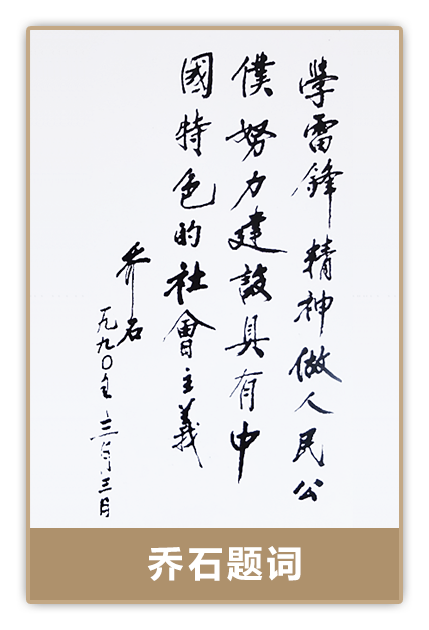 學雷鋒精神做人民公
僕努力建設具有中
國特色的社會主義
乔石
一九九〇年三月三日
乔石题词